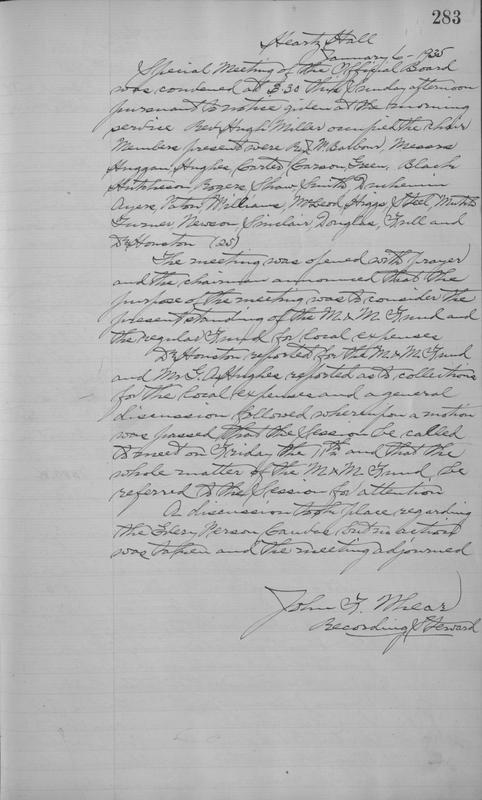 283
Heartz Hall
January 6 - 1935
Special Meeting of the Official Board
was convened at 3.30 this Sunday afternoon
pursuant to notice given at the morning
service Rev Hugh Miller occupied the chair
Members present were W Balbour, Messrs
Huggan, Hughes, Carter, Carson, Green, Black
Hutcheson Rogers, Shaw, Smith, Duchemin
Ayers, Paton, Williams, McLeod, Higgs, Steel,
Turner, Newson, Sinclair, Douglas, and
Dr Houston (25)
The meeting was opened with prayer
and the chairman announced that the
purpose of the meeting was to consider the
present standing of the M. & M. Fund and
the regular Fund for local expenses
Dr Houston reported for the M & M Fund
and Mr G. A. Hughes reported as to collections
for the local expenses and a general
discussion followed whereupon a motion
was passed that the Session be called
to meet on Friday the 11th and that the
whole matter of the M & M. Fund be
referred to the Session for attention
A discussion took place regarding
the Every Person Canvas, but no action
was taken and the meeting adjourned
John F. Whear
Recording Steward